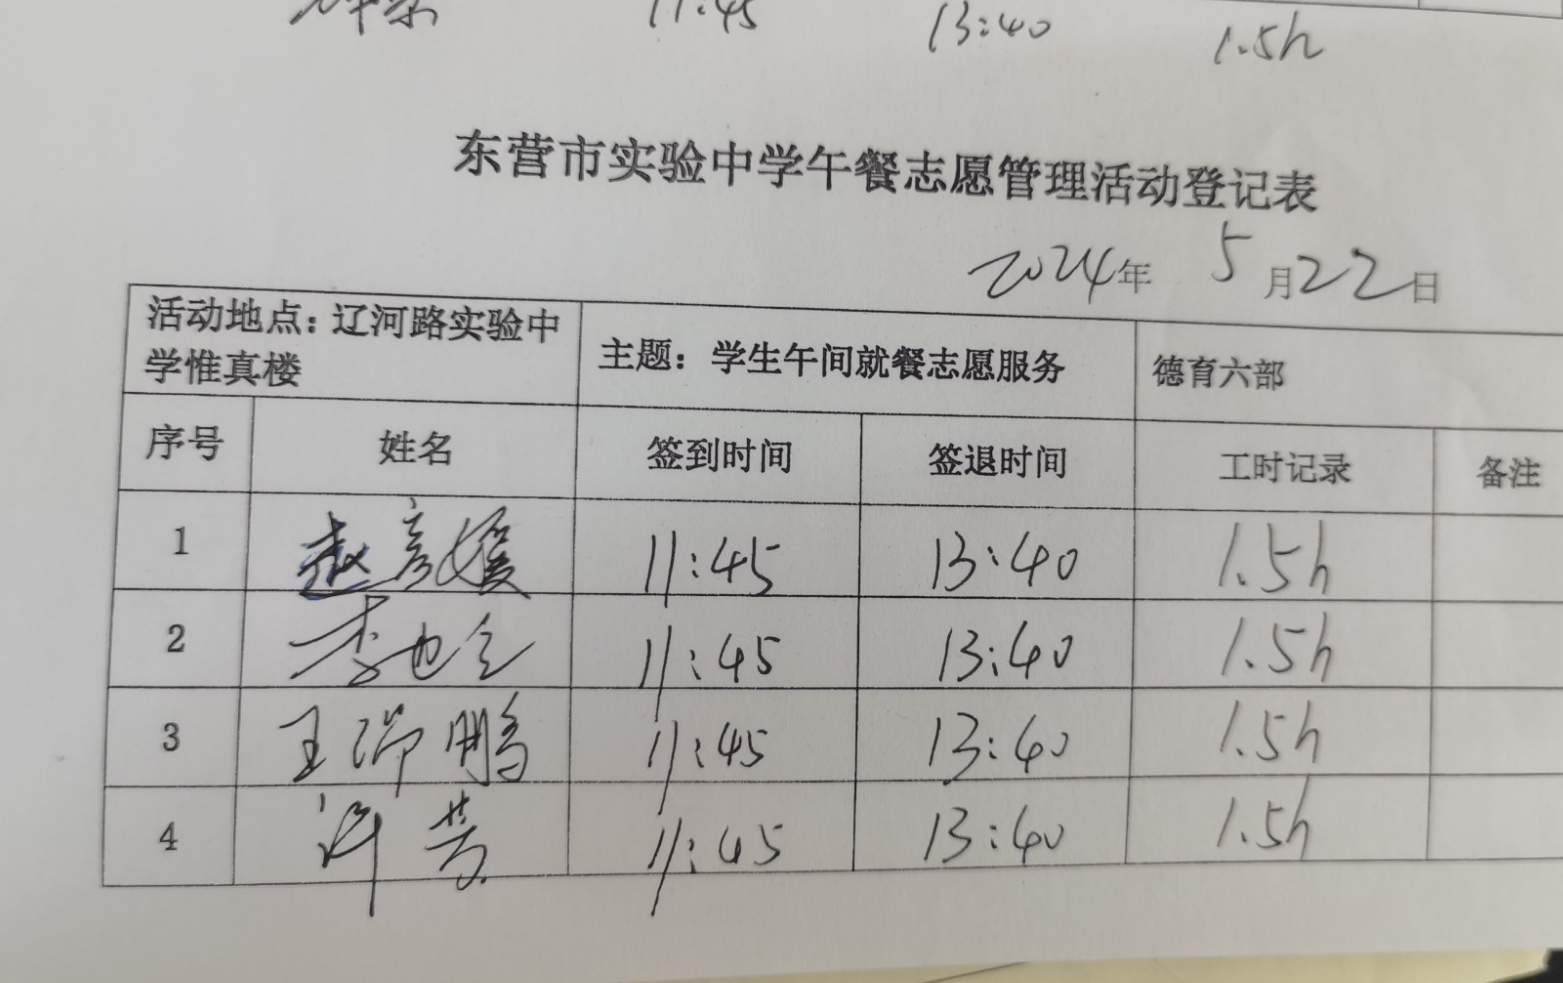 11:45 13:40 1.5h
东营市实验中学午餐志愿管理活动登记表
2024年 5月22日
活动地点：辽河路实验中
学惟真楼
主题：学生午间就餐志愿服务
德育六部
序号 姓名 签到时间 签退时间 工时记录 备注
1 赵彦媛 11:45 13:40 1.5h
2 李 11:45 13:40 1.5h
3 王瑞鹏 11:45 13:40 1.5h
4 许芳 11:45 13:40 1.5h